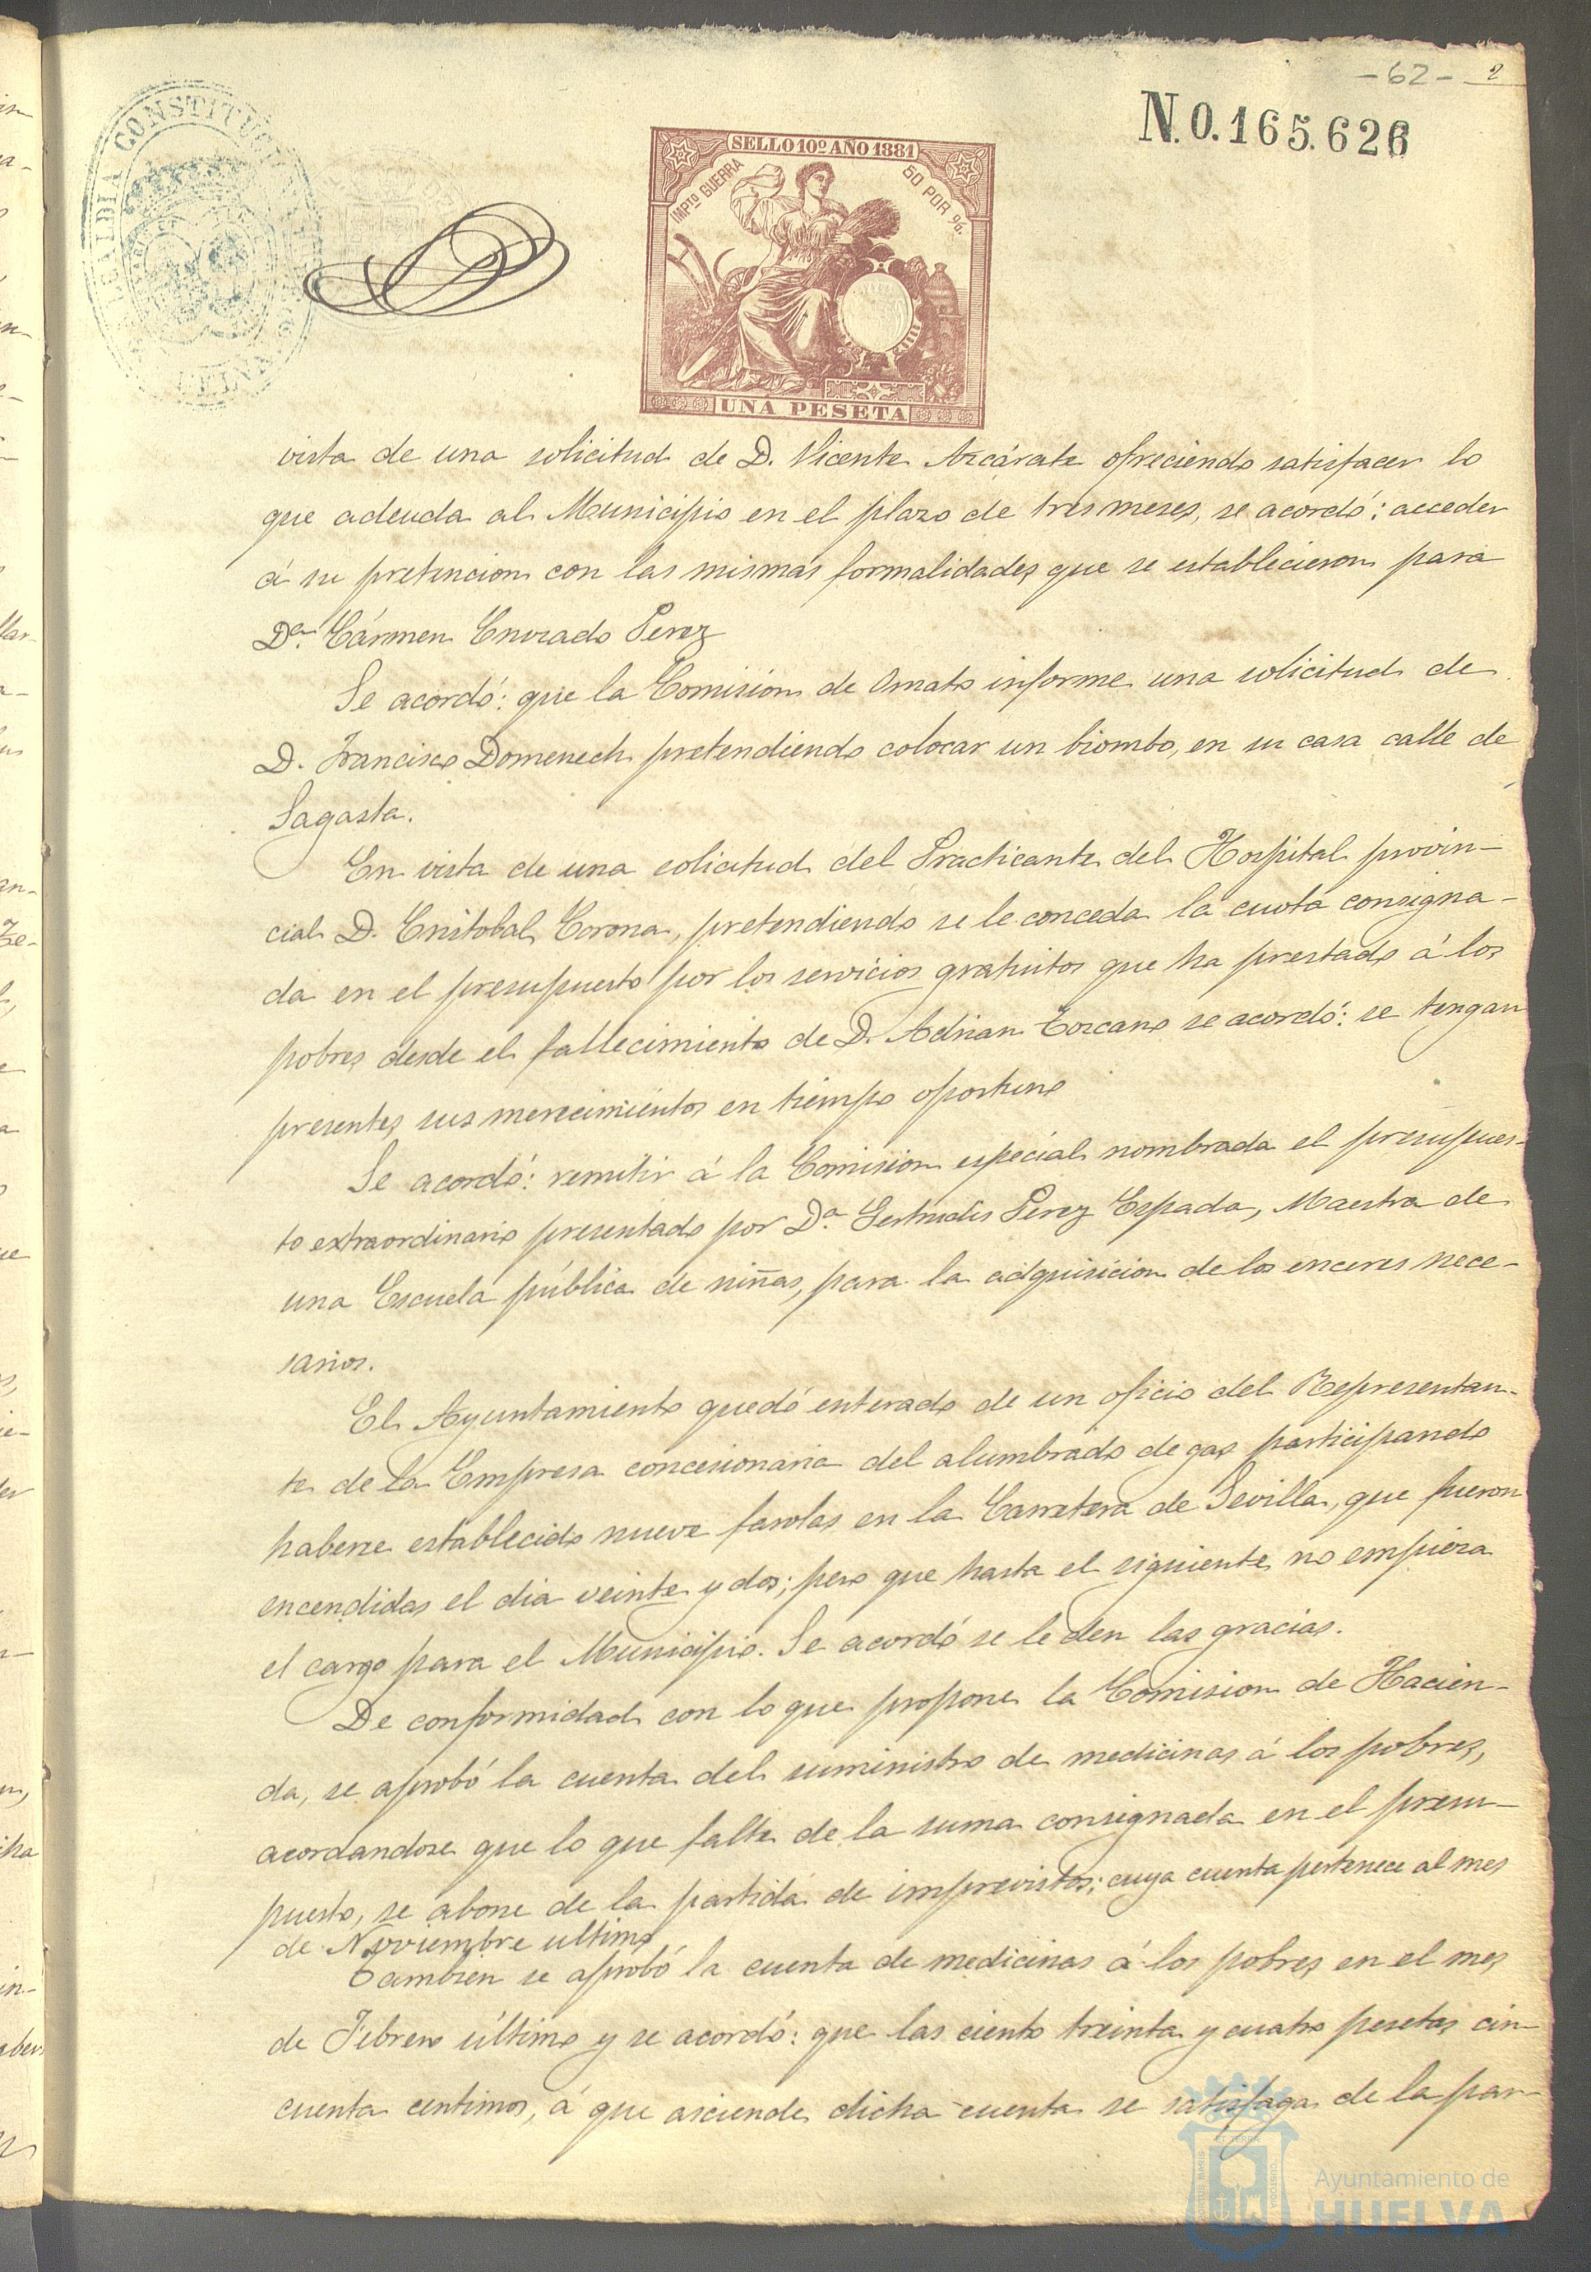 -62- 2
N.0.165.626
ALCALDIA CONSTITUCIONAL
HUELVA
SELLO 10º AÑO 1881
IMPTO GUERRA
50 POR %
UNA PESETA
vista de una solicitud de D. Vicente Azcárate ofreciendo satisfacer lo
que adeuda al Municipio en el plazo de tres meses, se acordó: acceder
á su pretencion con las mismas formalidades que se establecieron para
Dª Cármen Pérez
Se acordó: que la Comision de Ornato informe una solicitud de
D. Francisco Domenech pretendiendo colocar un biombo, en su casa calle de
Sagasta.
En vista de una solicitud del Practicante del Hospital provin-
cial D. Cristobal Corona, pretendiendo se le conceda la cuota consigna-
da en el presupuesto por los servicios gratuitos que ha prestado á los
pobres desde el fallecimiento de D. Adrian Toscano se acordó: se tengan
presentes sus merecimientos en tiempo oportuno
Se acordó: remitir á la Comision especial nombrada el presupues-
to extraordinario presentado por Dª Gertrudis Pérez Espada, Maestra de
una Escuela pública de niñas, para la adquisicion de los enceres nece-
sarios.
El Ayuntamiento quedó enterado de un oficio del Representan-
te de la Empresa concesionaria del alumbrado de gas participando
haberse establecido nueve farolas en la Carretera de Sevilla, que fueron
encendidas el dia veinte y dos; pero que hasta el siguiente no empieza
el cargo para el Municipio. Se acordó se le den las gracias.
De conformidad con lo que propone la Comision de Hacien-
da, se aprobó la cuenta del suministro de medicinas á los pobres,
acordandose que lo que falte de la suma consignada en el presu-
puesto, se abone de la partida de imprevistos; cuya cuenta pertenece al mes
de Noviembre ultimo
Tambien se aprobó la cuenta de medicinas á los pobres en el mes
de Febrero último y se acordó: que las ciento treinta y cuatro pesetas cin-
cuenta centimos, á que asciende dicha cuenta se satisfaga de la par-
Ayuntamiento de
HUELVA